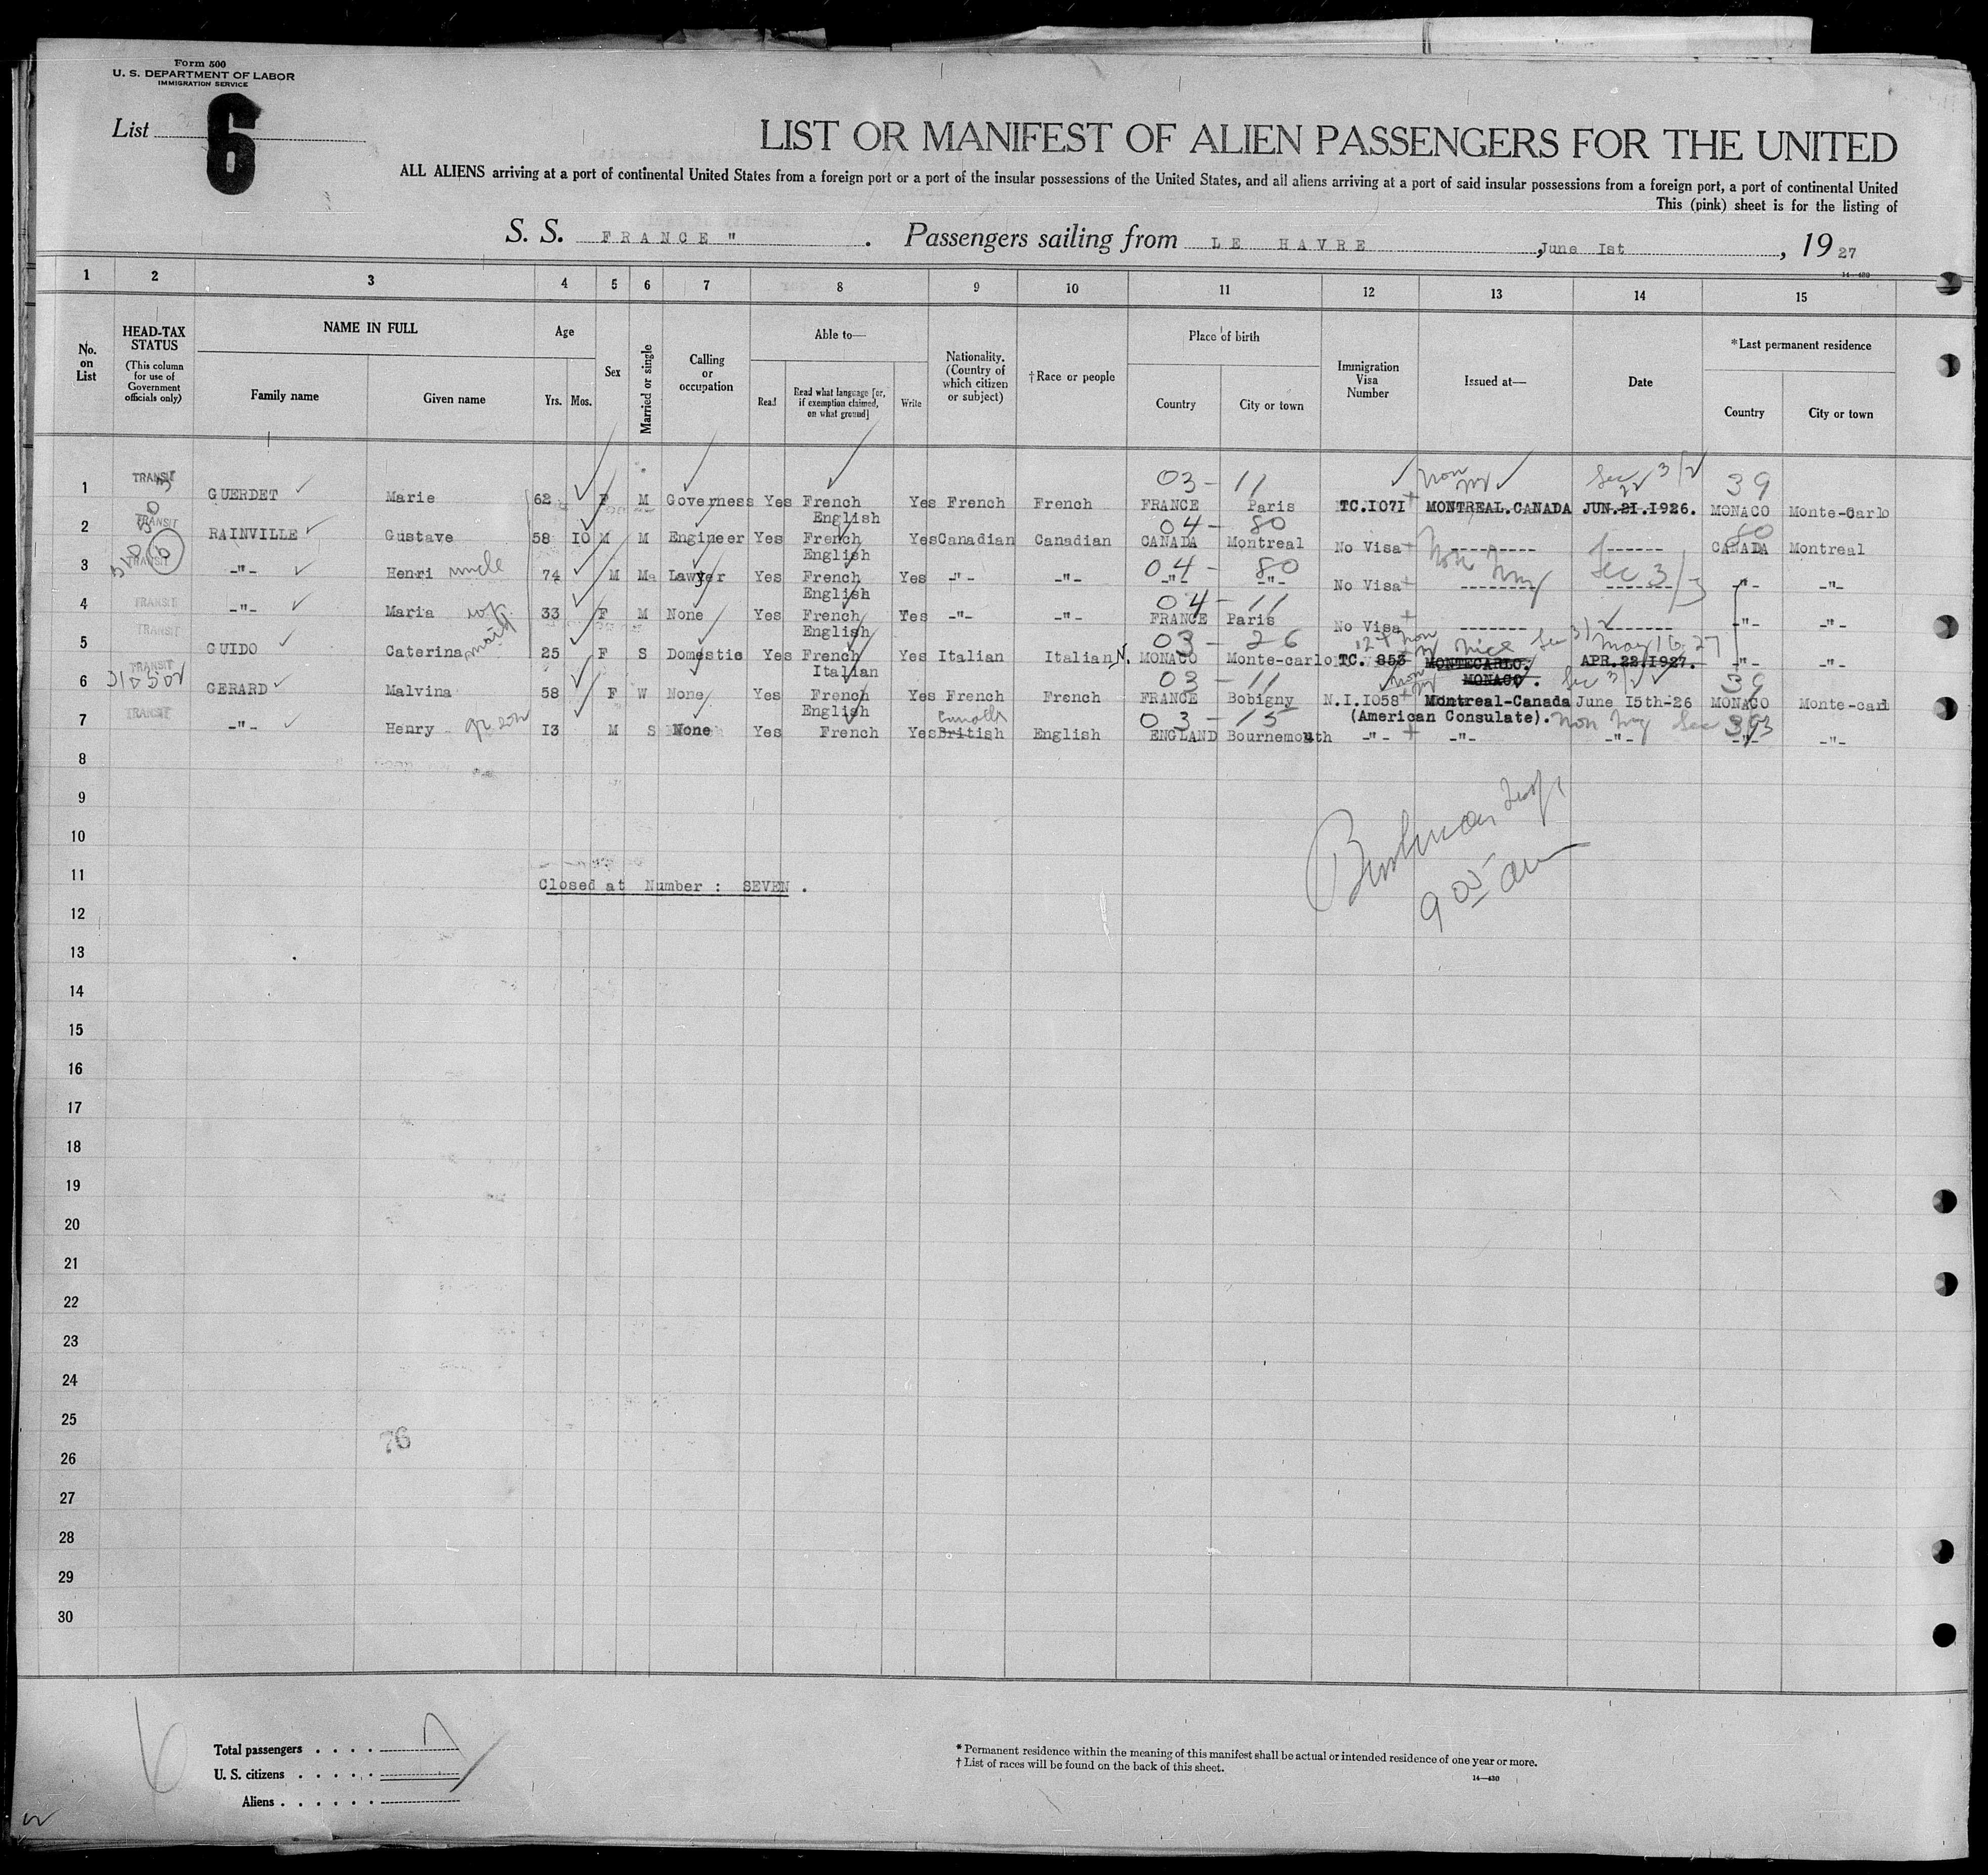 Form 500
U. S. DEPARTMENT OF LABOR
IMMIGRATION SERVICE
List 6
LIST OR MANIFEST OF ALIEN PASSENGERS FOR THE UNITED
ALL ALIENS arriving at a port of continental United States from a foreign port or a port of the insular possessions of the United States, and all aliens arriving at a port of said insular possessions from a foreign port, a port of continental United
This (pink) sheet is for the listing of
S. S. FRANCE " . Passengers sailing from LE HAVRE , June Ist , 19 27
14-430
1 2 3 4 5 6 7 8 9 10 11 12 13 14 15
No. on List
HEAD-TAX STATUS
(This column for use of Government officials only)
NAME IN FULL
Family name Given name
Age
Yrs. Mos.
Sex
Married or single
Calling or occupation
Able to—
Read
Read what language [or, if exemption claimed, on what ground]
Write
Nationality. (Country of which citizen or subject)
†Race or people
Place of birth
Country City or town
Immigration Visa Number
Issued at—
Date
*Last permanent residence
Country City or town
03 - 11 39
1 TRANSIT GUERDET Marie 62 F M Governess Yes French English Yes French French FRANCE Paris TC.I071 MONTREAL.CANADA JUN.21.1926. MONACO Monte-Carlo
04 - 80 80
2 TRANSIT RAINVILLE Gustave 58 10 M M Engineer Yes French English Yes Canadian Canadian CANADA Montreal No Visa ---------- ------ CANADA Montreal
04 - 80
3 TRANSIT -"- Henri uncle 74 M Ma Lawyer Yes French English Yes -"- -"- -"- -"- No Visa -------- -------- -"- -"-
04 - 11
4 TRANSIT -"- Maria 33 F M None Yes French English Yes -"- -"- FRANCE Paris No Visa -------- ------ -"- -"-
03 - 26 Nice May 16, 27
5 TRANSIT GUIDO Caterina maid 25 F S Domestic Yes French Italian Yes Italian Italian N. MONACO Monte-carlo TC. 853 MONTECARLO. MONACO . APR.22.1927. -"- -"-
03 - 11 39
6 TRANSIT GERARD Malvina 58 F W None Yes French English Yes French French FRANCE Bobigny N.I.I058 Montreal-Canada June I5th-26 MONACO Monte-carl
(American Consulate).
03 - 15
7 TRANSIT -"- Henry gr. son I3 M S None Yes French Yes British English ENGLAND Bournemouth -"- -"- -"- -"- -"-
8
9
10
11 Closed at Number : SEVEN .
9 05 am
12
13
14
15
16
17
18
19
20
21
22
23
24
25
76
26
27
28
29
30
Total passengers . . . . 7
U. S. citizens . . . . .
Aliens . . . . . .
* Permanent residence within the meaning of this manifest shall be actual or intended residence of one year or more.
† List of races will be found on the back of this sheet.
14—430